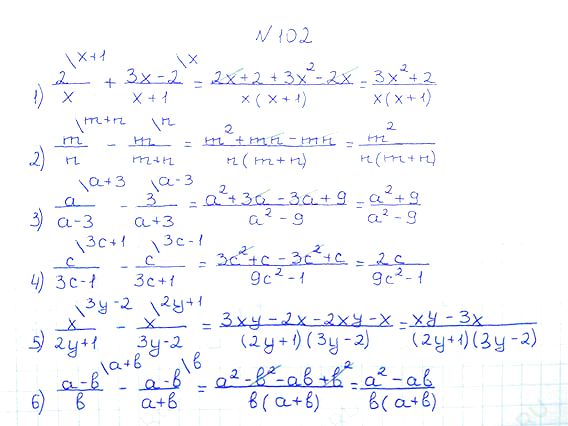 N 102
1) 2\x+1 / x + 3x-2\x / x+1 = 2x+2+3x²-2x / x(x+1) = 3x²+2 / x(x+1)
2) m\m+n / n - m\n / m+n = m²+mn-mn / n(m+n) = m² / n(m+n)
3) a\a+3 / a-3 - 3\a-3 / a+3 = a²+3a-3a+9 / a²-9 = a²+9 / a²-9
4) c\3c+1 / 3c-1 - c\3c-1 / 3c+1 = 3c²+c-3c²+c / 9c²-1 = 2c / 9c²-1
5) x\3y-2 / 2y+1 - x\2y+1 / 3y-2 = 3xy-2x-2xy-x / (2y+1)(3y-2) = xy-3x / (2y+1)(3y-2)
6) a-в\a+в / в - a-в\в / a+в = a²-в²-aв+в² / в(a+в) = a²-aв / в(a+в)